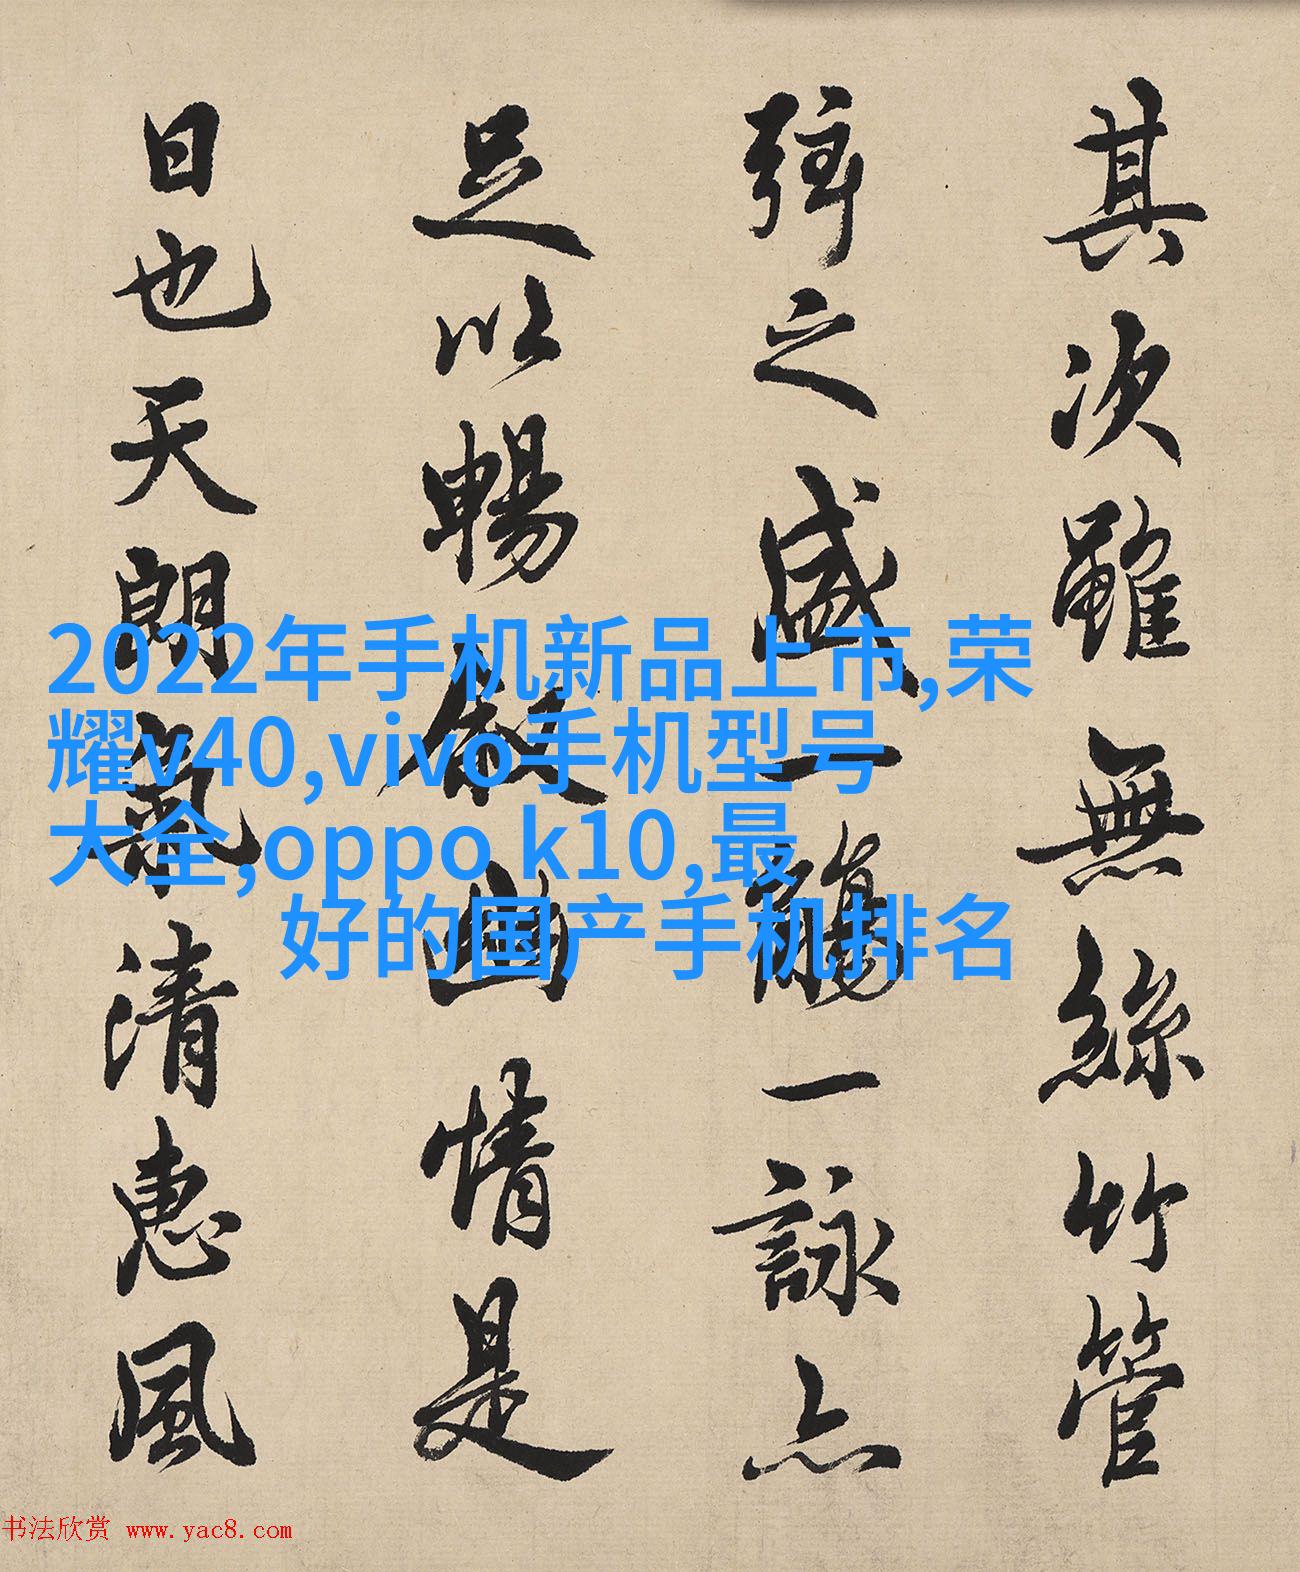 其次雖無絲竹管
弦之盛一觴一詠亦
足以暢敘幽情是
日也天朗氣清惠風
2022年手机新品上市,荣
耀v40,vivo手机型号
大全,oppo k10,最
好的国产手机排名
书法欣赏 www.yac8.com